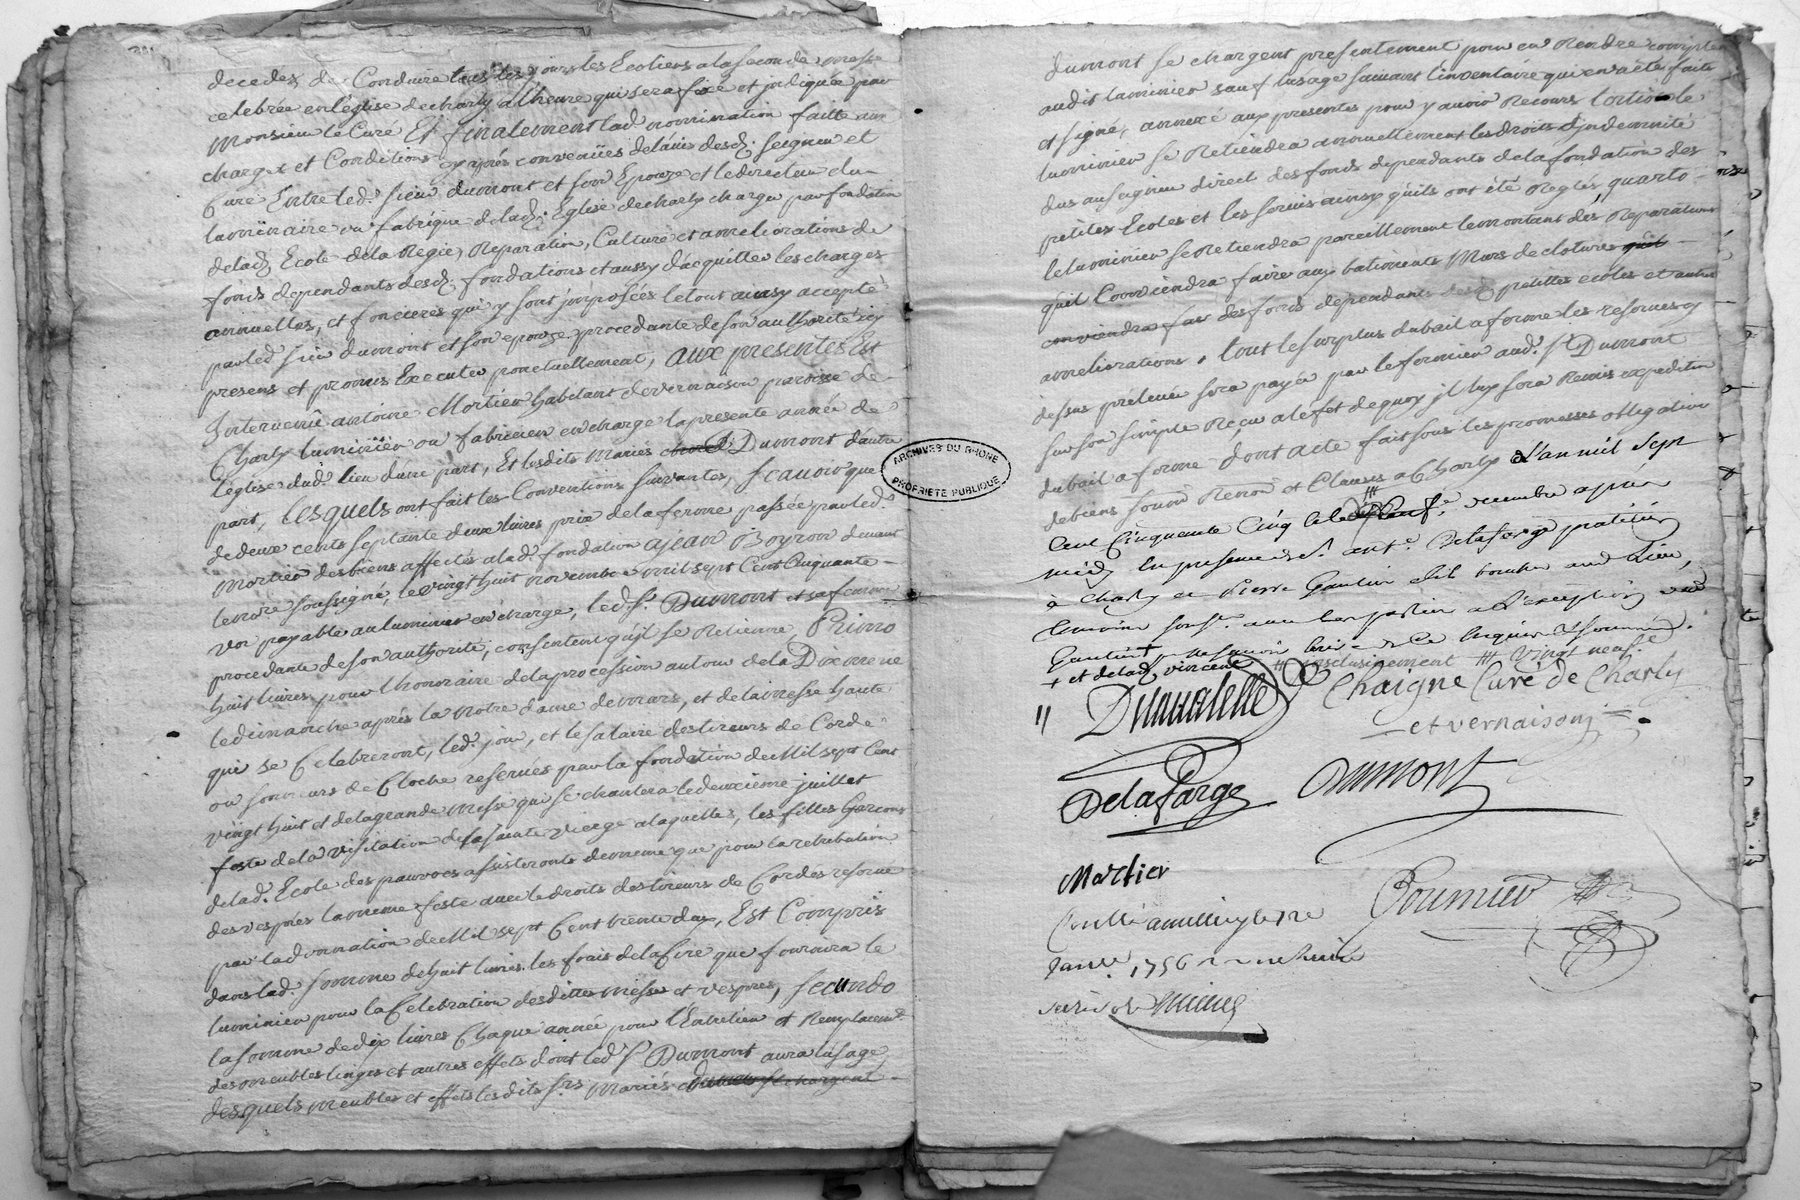 decedez de Conduire tous les jours les Ecoliers a la seconde messe
celebrée en l'églize de charly a lheure qui sera fixé et jndiquée par
Monsieur le Curé Et finalement lad. nomination faitte aux
charges et Conditions cy apres convenües de lavis desd. seigneur et
Curé Entre led. sieur dumont et son Epouze et le directeur du
luminaire ou fabrique de lad. Eglise de charly chargé par fondation
de lad. Ecole de la Regie, Reparation, Culture et ameliorations des
fonds dependants desd. fondations et aussy dacquitter les charges
annuelles, et foncieres qui y sont jmposées le tout ainsy accepté
par led. sieur dumont et son epouze procedante de son authorité icy
presens et promis Executer ponctuellement, aux presentes Est
Jntervenu antoine Mortier habitant de vernaison paroisse de
Charly luminier ou fabricien en charge la presente année de
l'églize dud. lieu dune part, Et lesdits Mariés Dumont d'autre
part, lesquels ont fait les Conventions suivantes, scavoir que
de deux cents septante deux livres prix de la ferme passée par led.
Mortier des biens affectés a lad. fondation a jean Boyron devant
le nore soussigné, le vingt huit novembre mil sept Cent Cinquante
payable au luminier en charge, led. sr. Dumont et sa femme
procedante de son authorité, consentent qu'jl se Retienne, Primo
huit livres pour l'honoraire de la procession autour de la Dixmerie
le dimanche aprés la notre dame de mars, et de la messe haute
qui se Celebreront, led. jour, et le salaire des tireurs de Corde
ou sonneurs de Cloche reservés par la fondation de Mil sept Cent
vingt huit et de la grande Messe qui se chantera le deuxieme juillet
feste de la visitation de la sainte vierge a laquelle, les filles Garcons
de lad. Ecole des pauvres assisteronts de meme que pour la retribution
des vespres la meme feste avec le droits des tireurs de Cordes reservé
par la donnation de Mil sept Cent trente deux, Est Compris
dans lad. somme de huit livres les frais de la Cire que fournira le
luminier pour la Celebration desdittes Messes et vespres, secundo
la somme de dix livres Chaque année pour l'Entretien et Remplacemt.
des meubles linges et autres effets dont led. sr. Dumont aura lusage
desquels meubles et effets lesdits srs. Mariés
dumont se chargent presentement pour en Rendre compte
audit luminier sauf lusage suivant l'inventaire qui en a été fait
et signé, annexé aux presentes pour y avoir Recours tertio le
luminier se Retiendra annuellement les droits d'jndemnité
dus au seigneur direct des fonds dependants de la fondation des
petites Ecoles et les servis ainsy qu'ils ont été Reglés, quarto
le luminier se Retiendra pareillement le montant des Reparations
qu'il Conviendra faire aux batiments Murs de clotures
des fonds dependants desd. petittes ecoles et autres
ameliorations, tout le surplus du bail a ferme les reserves cy
dessus prelevée sera payée par le fermier aud. sr. Dumont
sur son simple Reçu a leffet de quoy jl luy sera Remis expedition
du bail a ferme dont acte fait sous les promesses obligation
de biens soumis Renon et Clauses a Charly L'an mil sept
Cent Cinquante Cinq et le novembre aprés
midy En presence de sr. ant. Delafarge praticien
a charly et Pierre Gaultier dud. Lieu,
temoins a l'exception dud.
Gaultier
+ et de lad. vincent # exclusivement ## vingt neuf.e
Chaigne Curé de Charly
et vernaison
Delafarge Dumont
Mortier
Janv. 1756